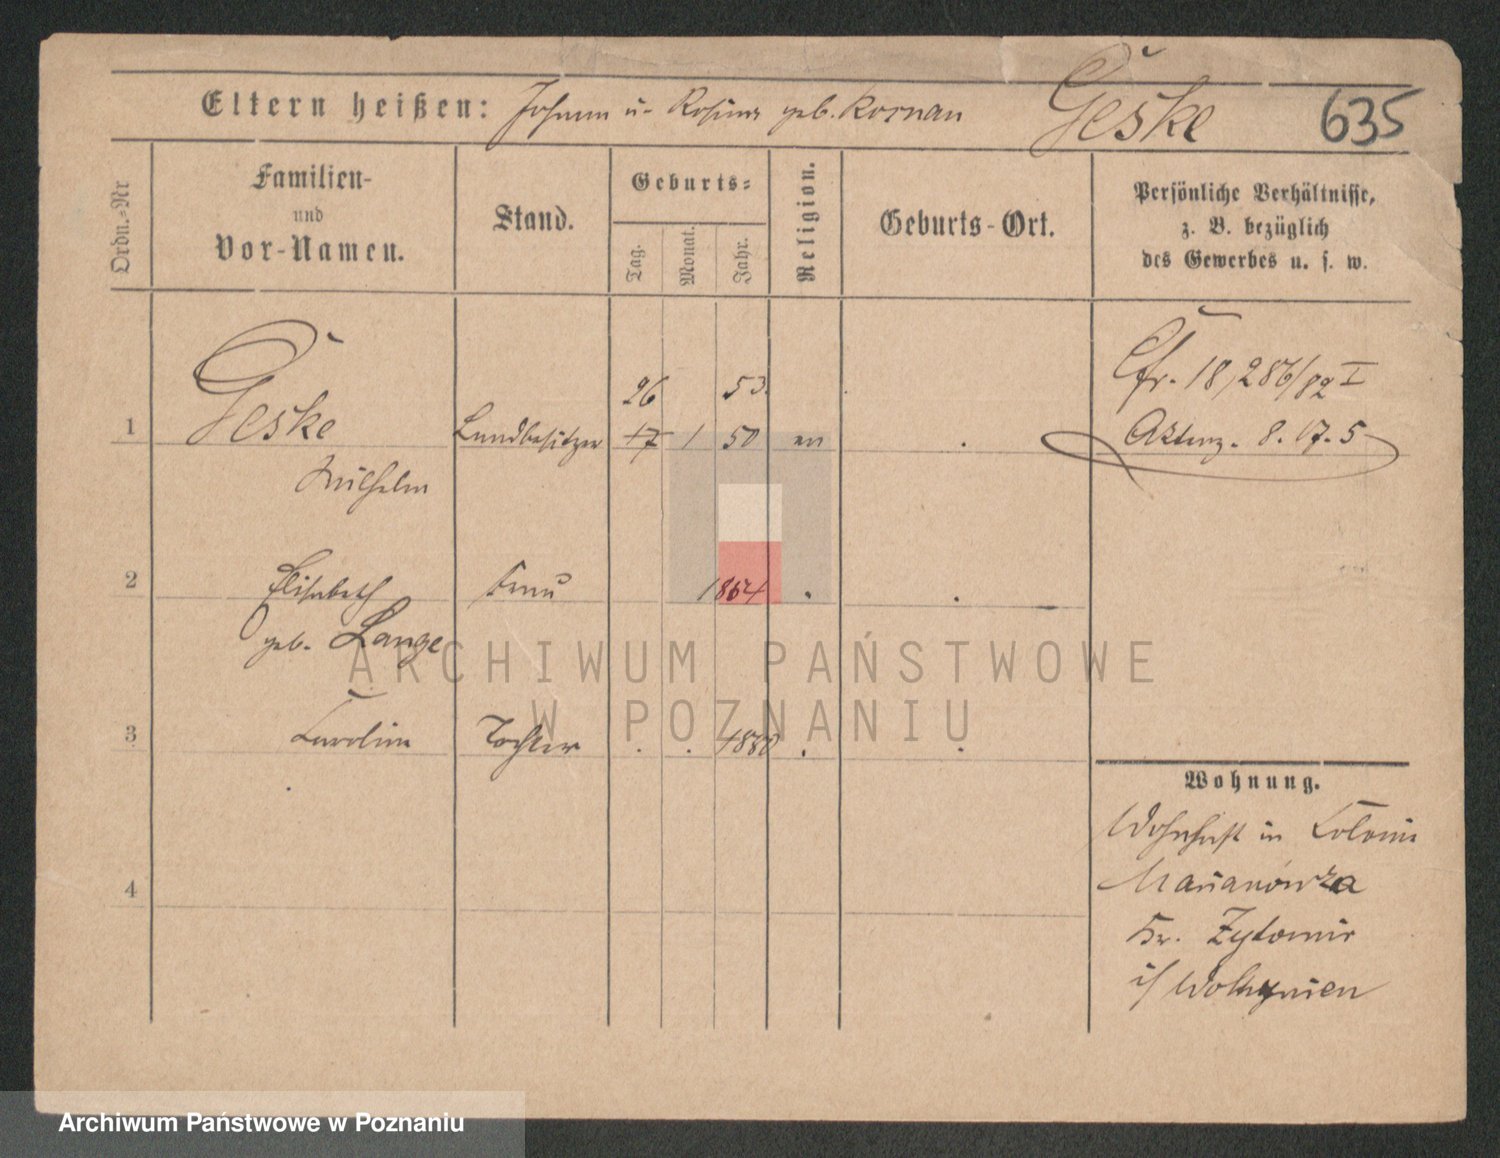 Eltern heißen: Johann u. Rosina geb. Kornau Geske 635
Ordn.-Nr
Familien-
und
Vor-Namen.
Stand.
Geburts-
Tag.
Monat.
Jahr.
Religion.
Geburts-Ort.
Persönliche Verhältnisse,
z. B. bezüglich
des Gewerbes u. s. w.
Cfr. 18,286/82 I
26 53.
1 Geske Landbesitzer 17 1 50 ev
8.17.5
Wilhelm
2 Elisabeth Frau 1854
geb. Lange
3 Carolina Tochter 1880
4
Wohnung.
Wohnhaft in Colonie
Marianówka
Kr. Zytomir
i/ Wolhynien
ARCHIWUM PAŃSTWOWE
W POZNANIU
Archiwum Państwowe w Poznaniu